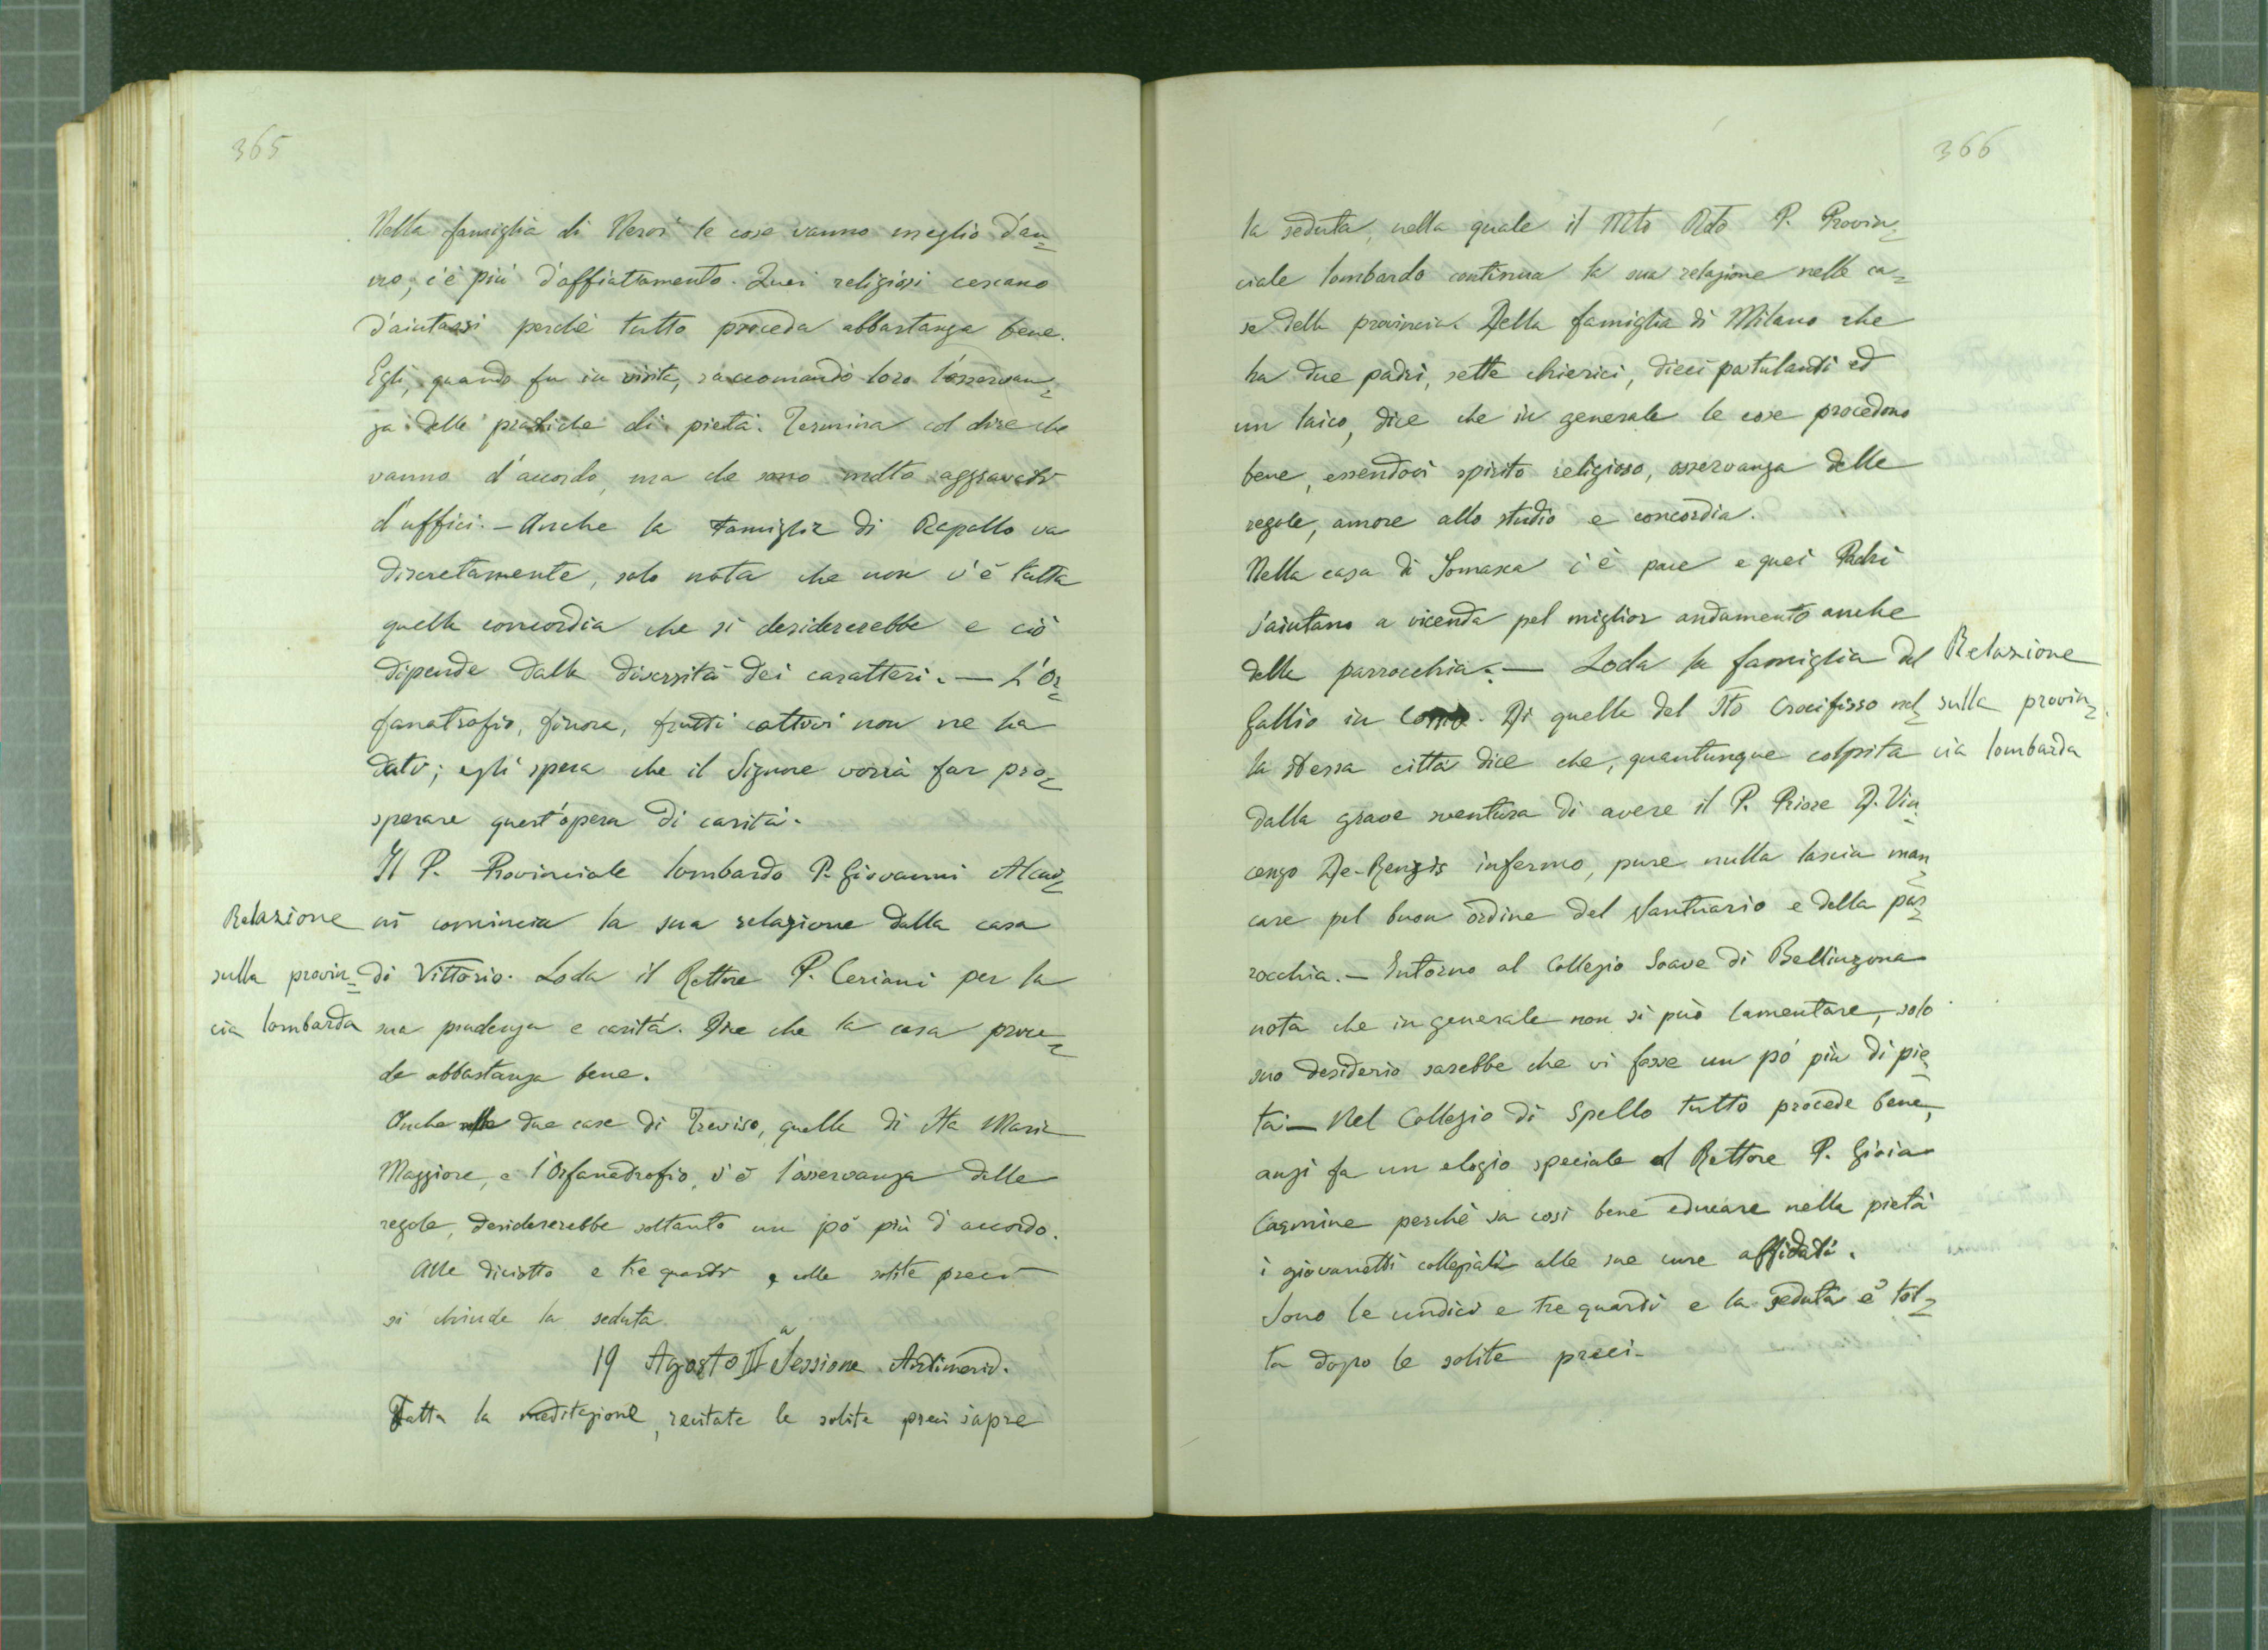 365
Nella famiglia di Nervi le cose vanno meglio d'an=
no, c'è più d'affiattamento. Quei religiosi cercano
d'aiutarsi perchè tutto proceda abbastanza bene.
Egli, quando fu in visita, raccomandò loro l'osservan=
za delle pratiche di pietà. Termina col dire che
vanno d'accordo, ma che sono molto aggravati
d'uffici. – Anche la Famiglia di Rapallo va
discretamente, solo nota che non v'è tutta
quella concordia che si desidererebbe e ciò
dipende dalla diversità dei caratteri. — L'Or=
fanatrofio, finora, frutti cattivi non ne ha
dato; egli spera che il Signore vorrà far pro=
sperare quest'opera di carità.
Il P. Provinciale lombardo P. Giovanni Alcai=
ni comincia la sua relazione dalla casa
di Vittorio. Loda il Rettore P. Ceriani per la
sua prudenza e carità. Dice che la casa proce=
de abbastanza bene.
Relazione
sulla provin=
cia lombarda
Anche nelle due case di Treviso, quella di Sta Maria
Maggiore, e l'Orfanotrofio, v'è l'osservanza delle
regole, desidererebbe soltanto un pò più d'accordo.
Alle diciotto e tre quarti, colle solite preci
si chiude la seduta.
19 Agosto IIa Sessione. Antimerid.
Fatta la meditazione, recitate le solite preci s'apre
366
la seduta, nella quale il Mto Rdo P. Provin=
ciale lombardo continua la sua relazione nelle ca=
se della provincia. Della famiglia di Milano che
ha due padri, sette chierici, dieci postulandi ed
un laico, dice che in generale le cose procedono
bene, essendovi spirito religioso, osservanza delle
regole, amore allo studio e concordia.
Nella casa di Somasca c'è pace e quei Padri
s'aiutano a vicenda pel miglior andamento anche
della parrocchia. — Loda la famiglia del
Gallio in Como. Di quella del Sto Crocifisso nel=
la stessa città dice che, quantunque colpita
dalla grave sventura di avere il P. Priore D. Vin=
cenzo De-Renzis infermo, pure nulla lascia man=
care pel buon ordine del Santuario e della par=
rocchia. – Intorno al Collegio Soave di Bellinzona
nota che in generale non si può lamentare, solo
suo desiderio sarebbe che vi fosse un pò più di pie=
tà. — Nel Collegio di Spello tutto procede bene,
anzi fa un elogio speciale al Rettore P. Gioia
Carmine perchè sa così bene educare nella pietà
i giovanetti collegiali alle sue cure affidati.
Sono le undici e tre quarti e la seduta è tol=
ta dopo le solite preci.
Relazione
sulla provin=
cia lombarda